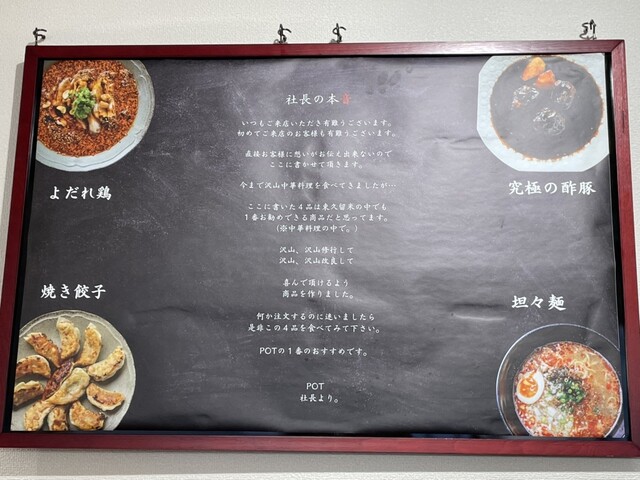 社長の本音
いつもご来店いただき有難うございます。
初めてご来店のお客様も有難うございます。
直接お客様に想いがお伝え出来ないので
ここに書かせて頂きます。
今まで沢山中華料理を食べてきましたが…
ここに書いた4品は東久留米の中でも
1番お勧めできる商品だと思ってます。
(※中華料理の中で。)
沢山、沢山修行して
沢山、沢山改良して
喜んで頂けるよう
商品を作りました。
何か注文するのに迷いましたら
是非この4品を食べてみて下さい。
POTの1番のおすすめです。
POT
社長より。
よだれ鶏
究極の酢豚
焼き餃子
坦々麺